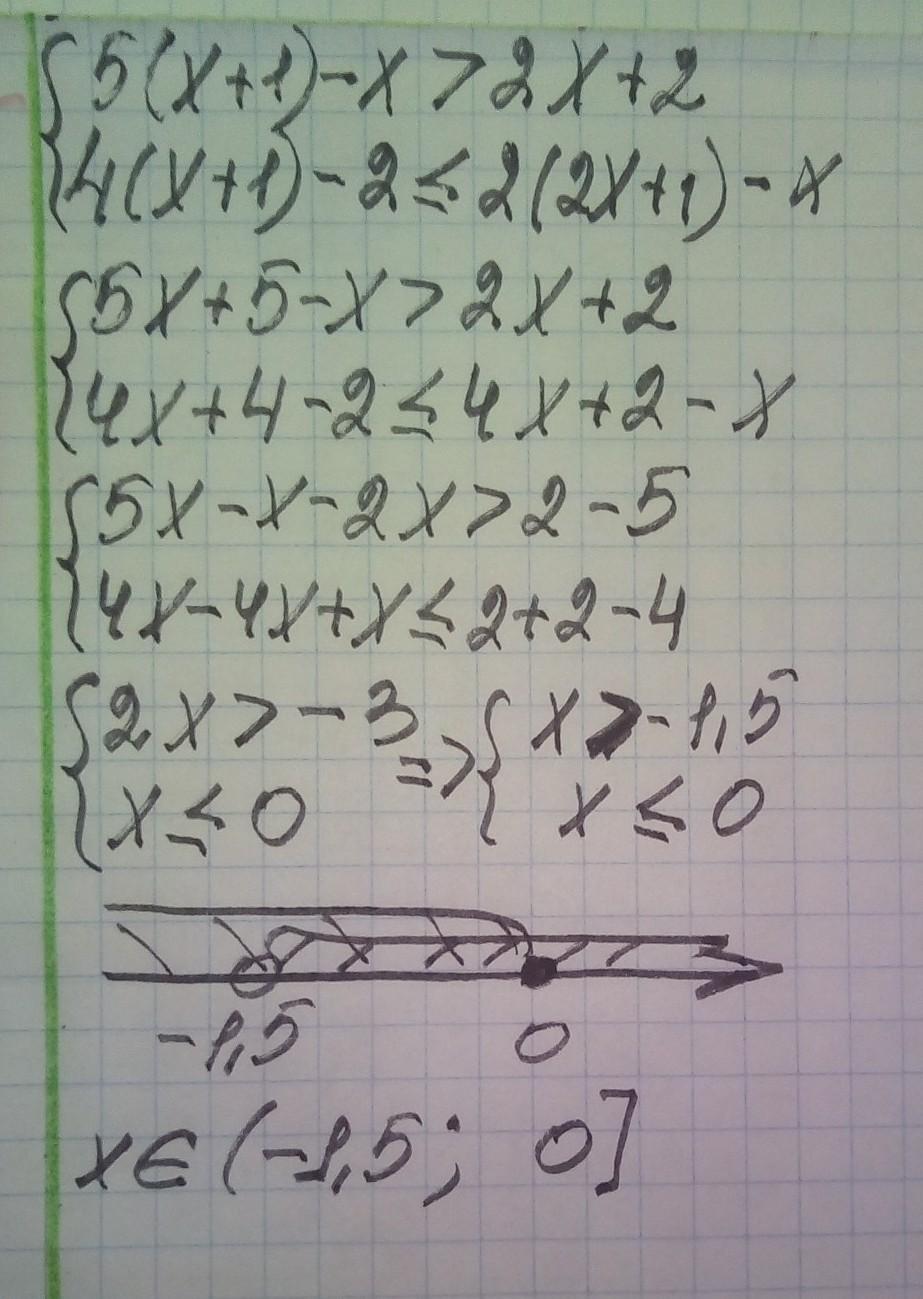 {5(x+1)-x>2x+2
{4(x+1)-2≤2(2x+1)-x
{5x+5-x>2x+2
{4x+4-2≤4x+2-x
{5x-x-2x>2-5
{4x-4x+x≤2+2-4
{2x>-3 => {x>-1,5
{x≤0 {x≤0
-1,5 0
x∈(-1,5; 0]